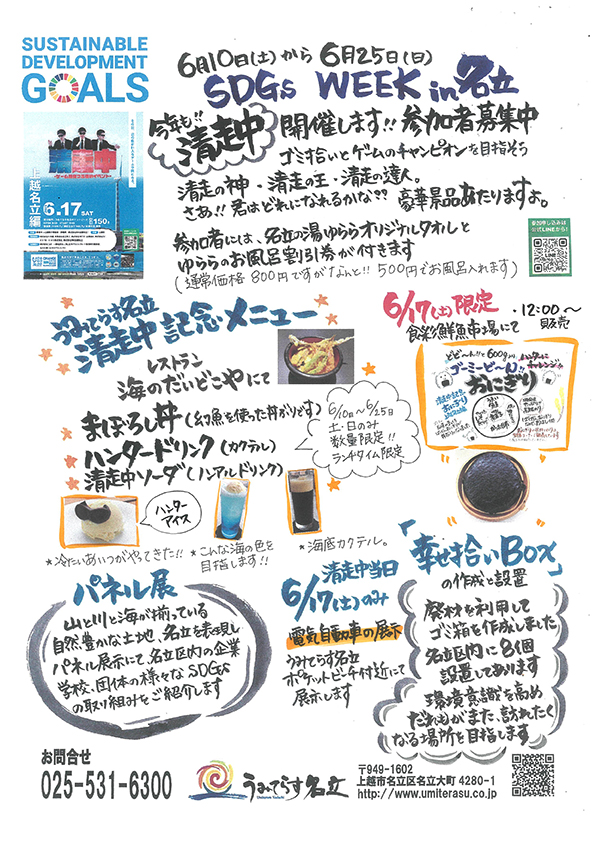 SUSTAINABLE
DEVELOPMENT
GOALS
6月10日(土)から6月25日(日)
SDGs WEEK in 名立
今年も!!
清走中
開催します!! 参加者募集中
ゴミ拾いとゲームのチャンピオンを目指そう
清走の神・清走の王・清走の達人。
さぁ!! 君はどれになれるかな?? 豪華景品あたりますよ。
参加者には、名立の湯ゆららオリジナルタオルと
ゆららのお風呂割引券が付きます
(通常価格800円ですがなんと!! 500円でお風呂入れます)
上越名立編
6.17 SAT
150名
参加申し込みは
公式LINEから!
うみてらす名立
清走中 記念メニュー
レストラン
海のだいどこやにて
まぼろし丼(幻魚を使った丼ぶりです)
ハンタードリンク(カクテル)
清走中ソーダ(ノンアルドリンク)
6/10㊏~6/25㊐
土・日のみ
数量限定!!
ランチタイム限定
6/17(土)限定
食彩鮮魚市場にて
・12:00~
販売
どどーん!!と600gより。ハンターにチャレンジ!!
ゴーミーど~ん!!
おにぎり
ハンター
アイス
*冷たいあいつがやってきた!!
*こんな海の色を
目指します!!
*海底カクテル。
パネル展
山と川と海が揃っている
自然豊かな土地、名立を表現し
パネル展示にて、名立区内の企業
学校、団体の様々なSDGs
の取り組みをご紹介します
清走中当日
6/17(土)のみ
電気自動車の展示
うみてらす名立
ポケットビーチ付近にて
展示します
「幸せ拾いBox」
の作成と設置
廃材を利用して
ゴミ箱を作成しました
名立区内に8個
設置してあります
環境意識を高め
だれもがまた、訪れたく
なる場所を目指します
お問合せ
025-531-6300
うみてらす名立
〒949-1602
上越市名立区名立大町 4280-1
http://www.umiterasu.co.jp